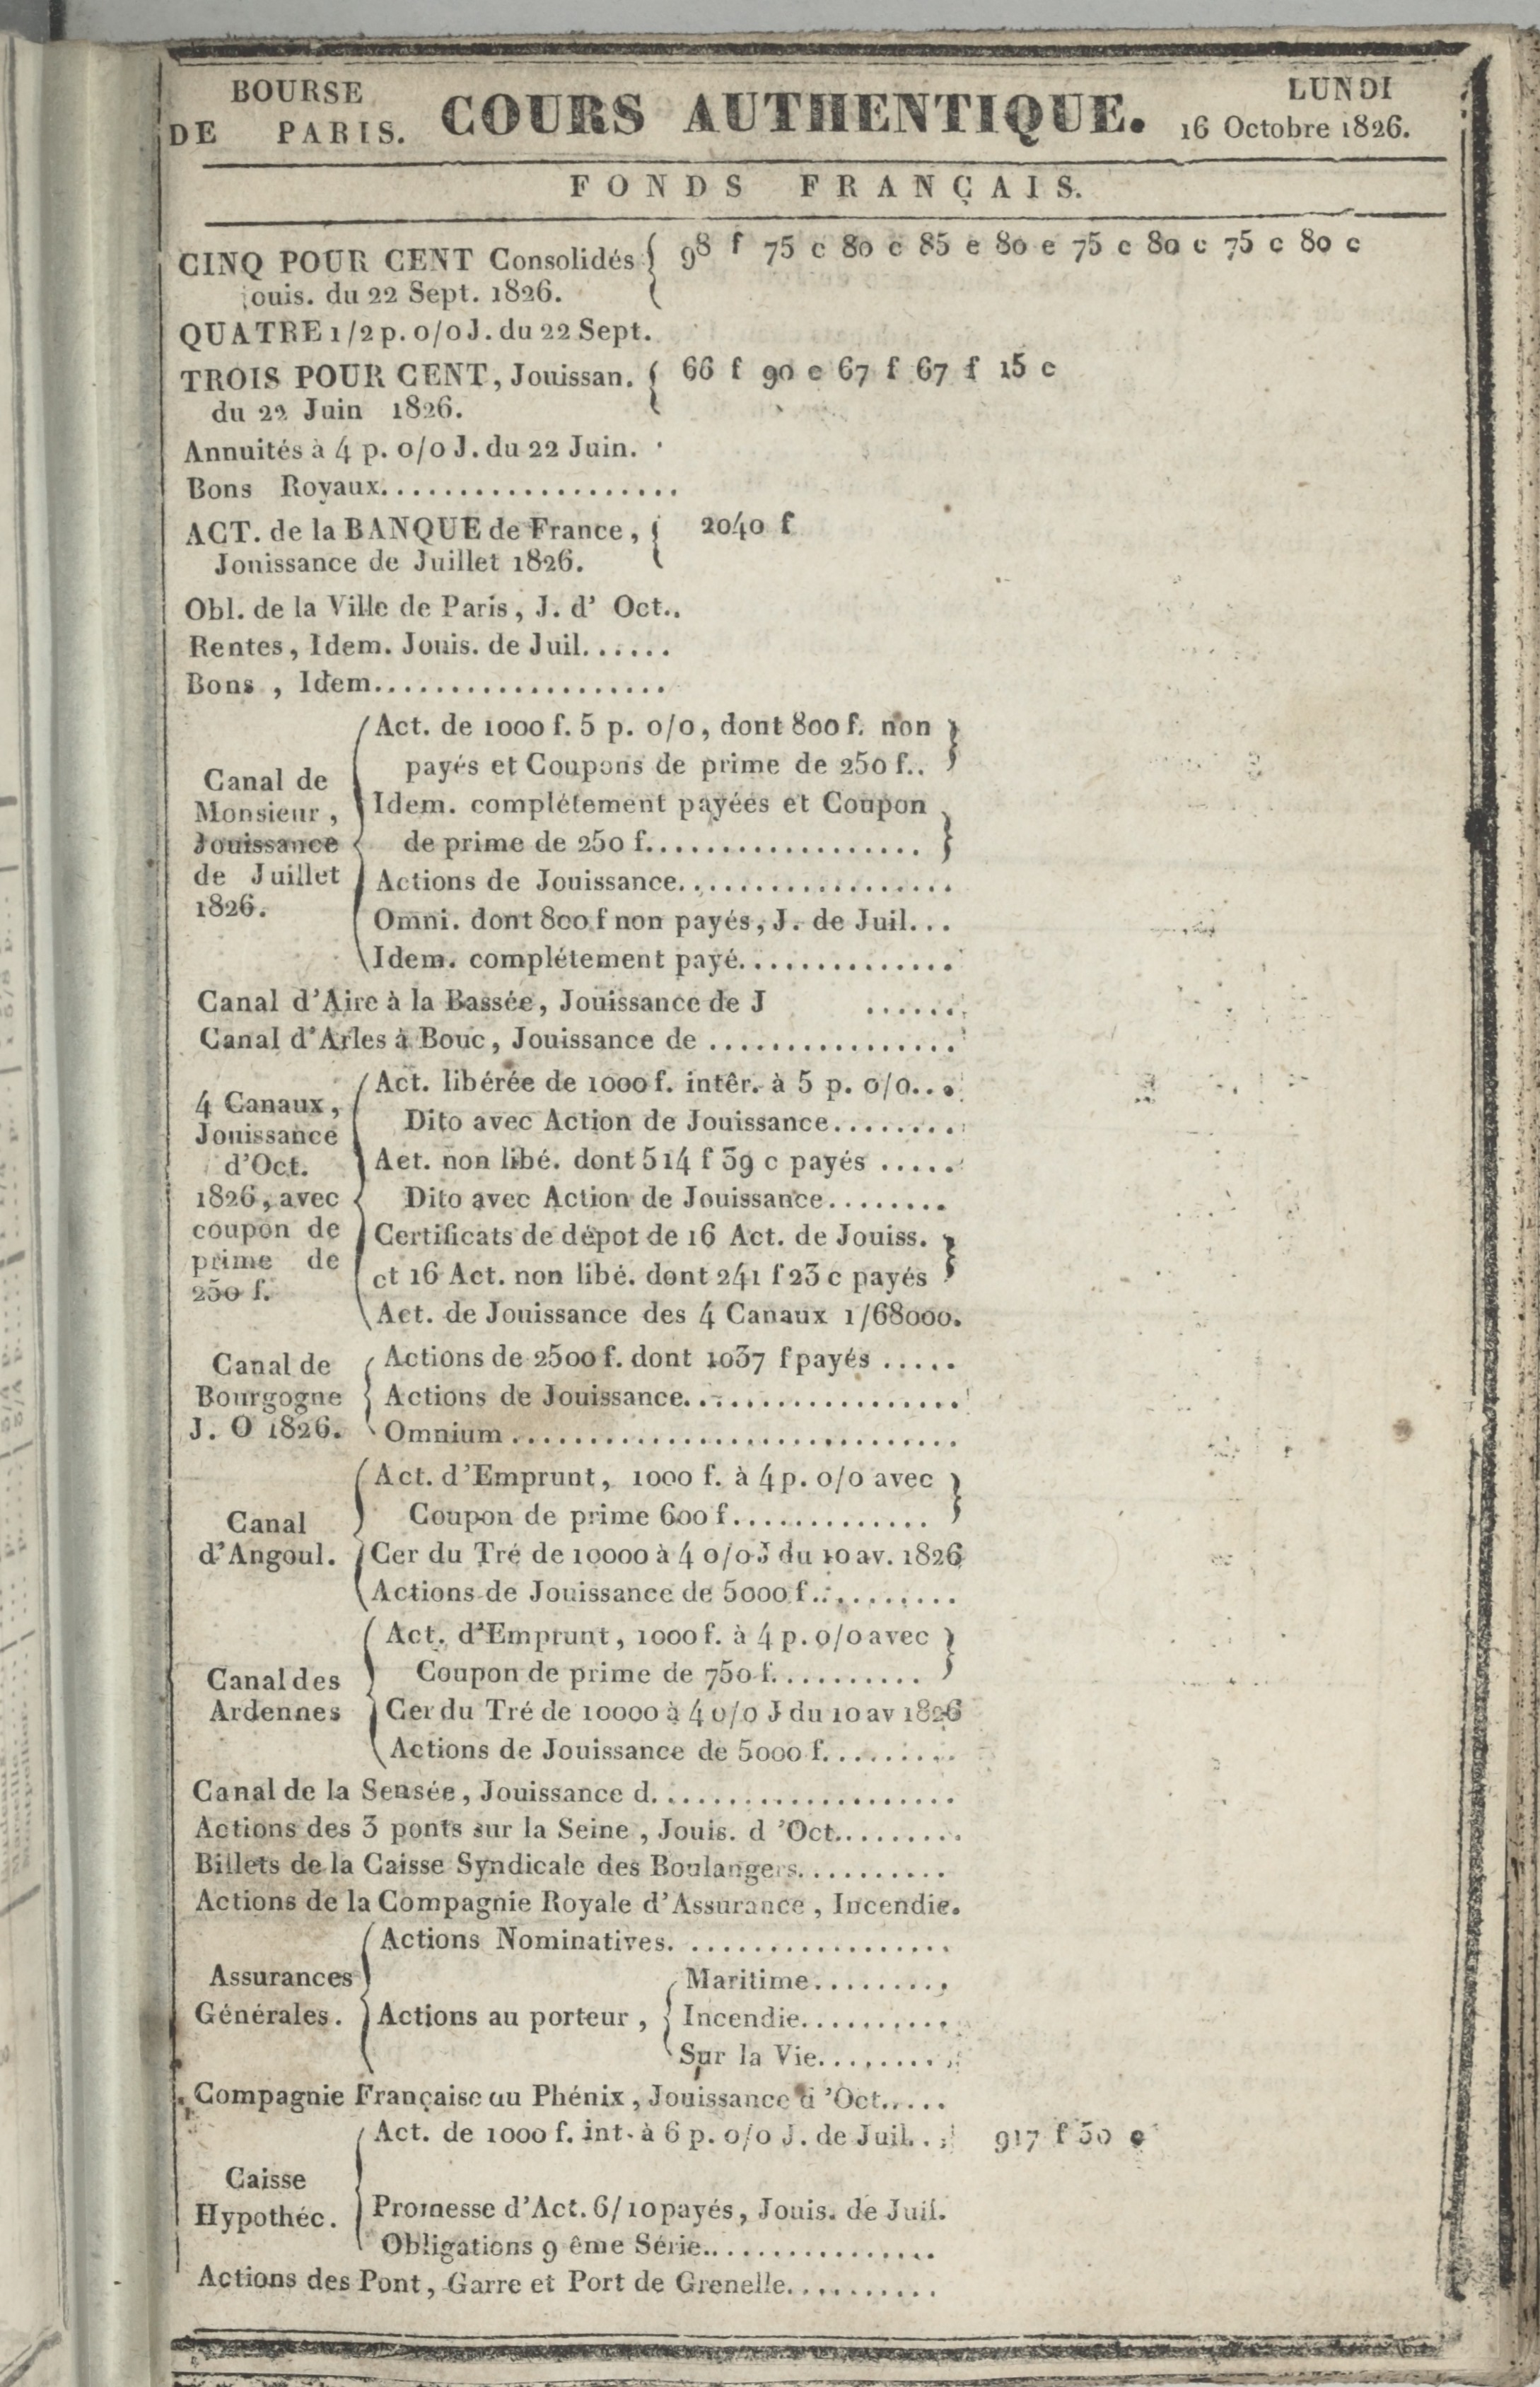 BOURSE
DE PARIS.
COURS AUTHENTIQUE.
LUNDI
16 Octobre 1826.
FONDS FRANÇAIS.
CINQ POUR CENT Consolidés { 98 f 75 c 80 c 85 e 80 e 75 c 80 c 75 c 80 c
jouis. du 22 Sept. 1826.
QUATRE 1/2 p. 0/0 J. du 22 Sept.
TROIS POUR CENT, Jouissan. { 66 f 90 e 67 f 67 f 15 c
du 22 Juin 1826.
Annuités à 4 p. 0/0 J. du 22 Juin.
Bons Royaux...................
ACT. de la BANQUE de France, { 2040 f
Jouissance de Juillet 1826.
Obl. de la Ville de Paris, J. d' Oct..
Rentes, Idem. Jouis. de Juil......
Bons, Idem...................
Canal de
Monsieur,
Jouissance
de Juillet
1826.
Act. de 1000 f. 5 p. 0/0, dont 800 f. non
payés et Coupons de prime de 250 f..
Idem. complétement payées et Coupon
de prime de 250 f..................
Actions de Jouissance..................
Omni. dont 800 f non payés, J. de Juil...
Idem. complétement payé..............
Canal d'Aire à la Bassée, Jouissance de J ......
Canal d'Arles à Bouc, Jouissance de ................
4 Canaux,
Jouissance
d'Oct.
1826, avec
coupon de
prime de
250 f.
Act. libérée de 1000 f. intêr. à 5 p. 0/0...
Dito avec Action de Jouissance........
Act. non libé. dont 514 f 39 c payés .....
Dito avec Action de Jouissance........
Certificats de dépot de 16 Act. de Jouiss.
et 16 Act. non libé. dont 241 f 23 c payés
Act. de Jouissance des 4 Canaux 1/68000.
Canal de
Bourgogne
J. O 1826.
Actions de 2500 f. dont 1037 f payés .....
Actions de Jouissance..................
Omnium .............................
Canal
d'Angoul.
Act. d'Emprunt, 1000 f. à 4 p. 0/0 avec
Coupon de prime 600 f.............
Cer du Tré de 10000 à 4 0/0 J du 10 av. 1826
Actions de Jouissance de 5000 f..........
Canal des
Ardennes
Act. d'Emprunt, 1000 f. à 4 p. 0/0 avec
Coupon de prime de 750 f..........
Cer du Tré de 10000 à 4 0/0 J du 10 av 1826
Actions de Jouissance de 5000 f.........
Canal de la Sensée, Jouissance d....................
Actions des 3 ponts sur la Seine, Jouis. d 'Oct.........
Billets de la Caisse Syndicale des Boulangers..........
Actions de la Compagnie Royale d'Assurance, Incendie.
Assurances
Générales.
Actions Nominatives. .................
Actions au porteur,
Maritime.........
Incendie..........
Sur la Vie.........
Compagnie Française du Phénix, Jouissance d 'Oct.....
Caisse
Hypothéc.
Act. de 1000 f. int. à 6 p. 0/0 J. de Juil... 917 f 50 c
Promesse d'Act. 6/10 payés, Jouis. de Juil.
Obligations 9 ême Série...............
Actions des Pont, Garre et Port de Grenelle..........